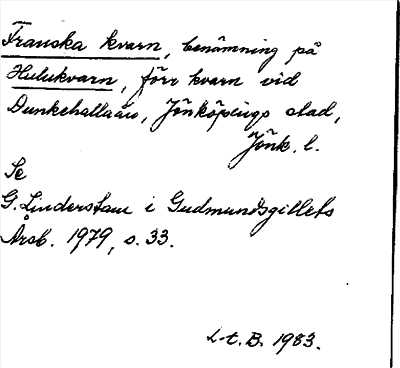 Franska kvarn, benämning på
Hulukvarn, förr kvarn vid
Dunkehallaån, Jönköpings stad,
Jönk. l.
Se
G. Linderstam i Gudmundsgillets
Årsb. 1979, s. 33.
L-t. B. 1983.